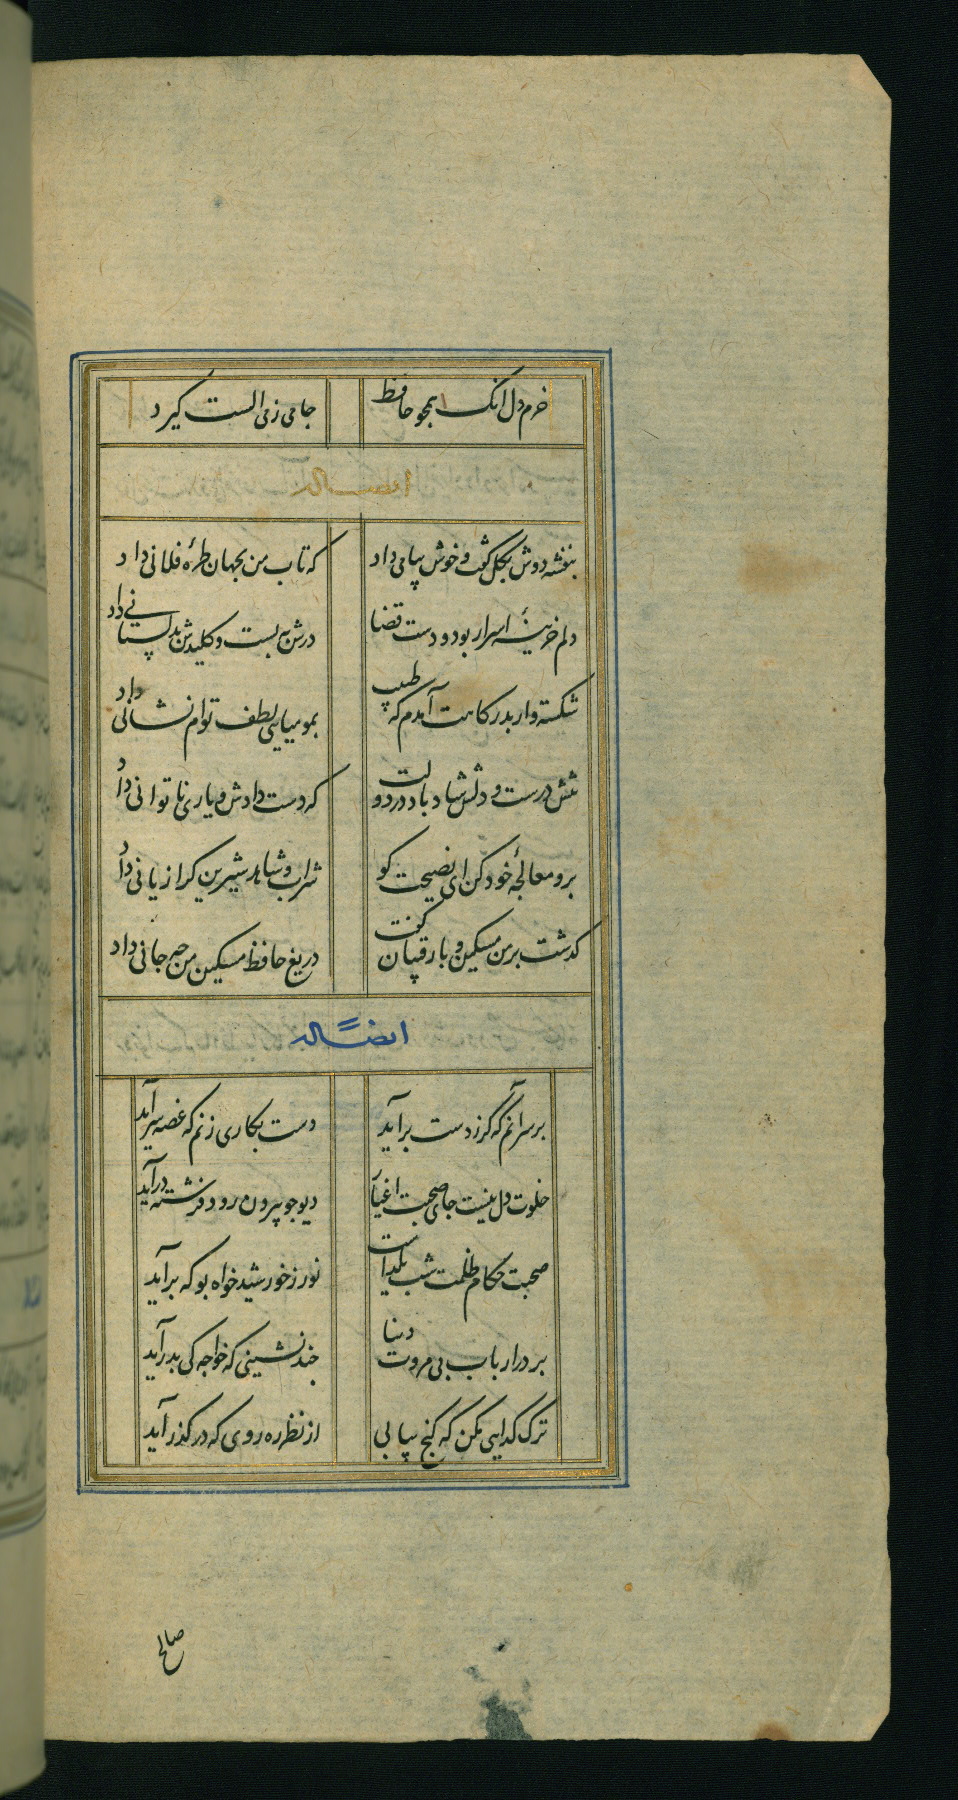 خرم دل آنک همچو حافظ
جامی ز می الست گیرد
بنفشه دوش بگل گفت و خوش پیامی داد
که تاب من بجهان طرهٔ فلانی داد
دلم خزینهٔ اسرار بود و دست قضا
درش به بست و کلیدش بدلستانی داد
شکسته وار بدرکاهت آمدم که طبیب
بمومیایی لطف توام نشانی داد
تنش درست و دلش شاد باد دردولت
که دست دادش و یاری ناتوانی داد
برو معالجهٔ خود کن ای نصیحت کو
شراب و شاهد شیرین کرا زیانی داد
کذشت بر من مسکین و با رقیبان کفت
دریغ حافظ مسکین من چه جانی داد
ایضاً له
بر سر آنم که گر ز دست برآید
دست بکاری زنم که غصه سرآید
خلوت دل نیست جای صحبت اغیار
دیو جو بیرون رود فرشته درآید
صحبت حکام ظلمت شب یلداست
نور ز خورشید خواه بو که برآید
بر در ارباب بی مروت دنیا
جند نشینی که خواجه کی بدرآید
ترک کدایی مکن که کنج بیابی
از نظر ره روی که در کذر آید
صالح